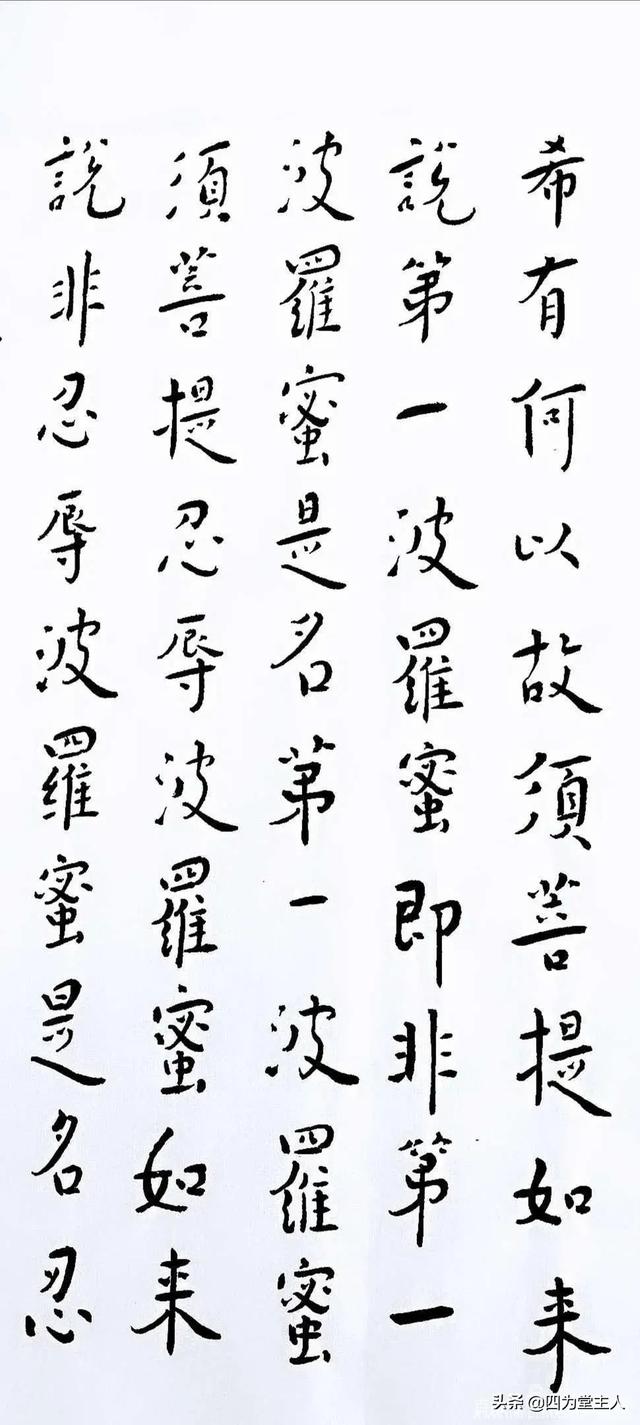 希有何以故須菩提如来
說第一波羅蜜即非第一
波羅蜜是名第一波羅蜜
須菩提忍辱波羅蜜如来
說非忍辱波羅蜜是名忍
头条 @四为堂主人